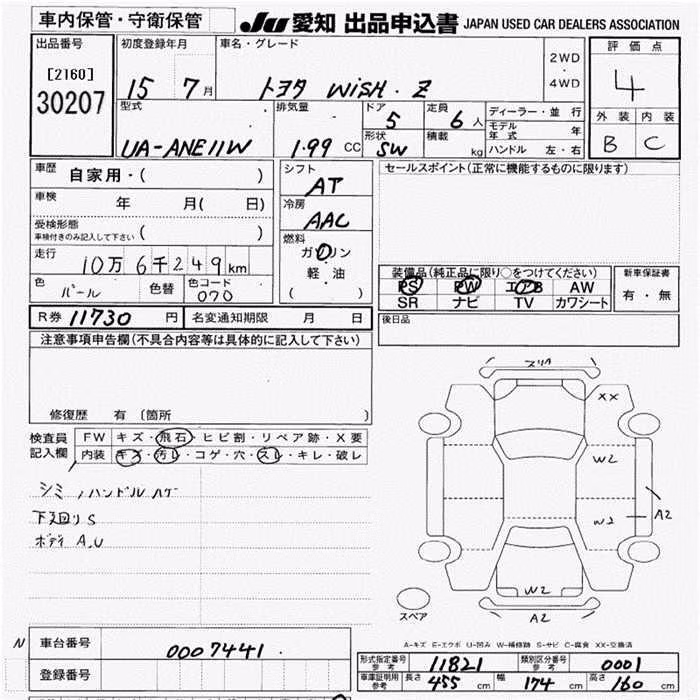 車内保管・守衛保管
JU 愛知 出品申込書 JAPAN USED CAR DEALERS ASSOCIATION
出品番号
[2160]
30207
初度登録年月
15 7月
車名・グレード
トヨタ WiSH・Z
2WD
・
4WD
評価点
4
外装 内装
B C
型式
UA-ANE11W
排気量
1.99 CC
ドア
5
定員
6人
形状
SW
積載
kg
ディーラー・並行
モデル年式 年
ハンドル 左・右
車歴 自家用・( )
車検 年 月( 日)
受検形態
車検付きのみ記入して下さい ( )
走行 10万6千249km
色 パール 色替 色コード 070
シフト
AT
冷房
AAC
燃料
ガソリン
軽・油
( )
セールスポイント(正常に機能するものに限ります)
装備品(純正品に限り○をつけてください)
PS PW エアB AW
SR ナビ TV カワシート
新車保証書
有・無
R券 11730 円 名変通知期限 月 日
後日品
注意事項申告欄(不具合内容等は具体的に記入して下さい)
修復歴 有 〔箇所 〕
検査員
記入欄
FW キズ・飛石・ヒビ割・リペア跡・X要
内装 キズ・汚レ・コゲ・穴・スレ・キレ・破レ
シミ ハンドルハゲ
下廻りS
ボディ A,U
スリA
XX
W2
W2
A2
W2
A2
スペア
A-キズ E-エクボ U-凹み W-補修跡 S-サビ C-腐食 XX-交換済
N
車台番号 0007441
登録番号
形式指定番号
参考
11821
類別区分番号
参考
0001
車庫証明用
参考
長さ 455 cm 幅 174 cm 高さ 160 cm